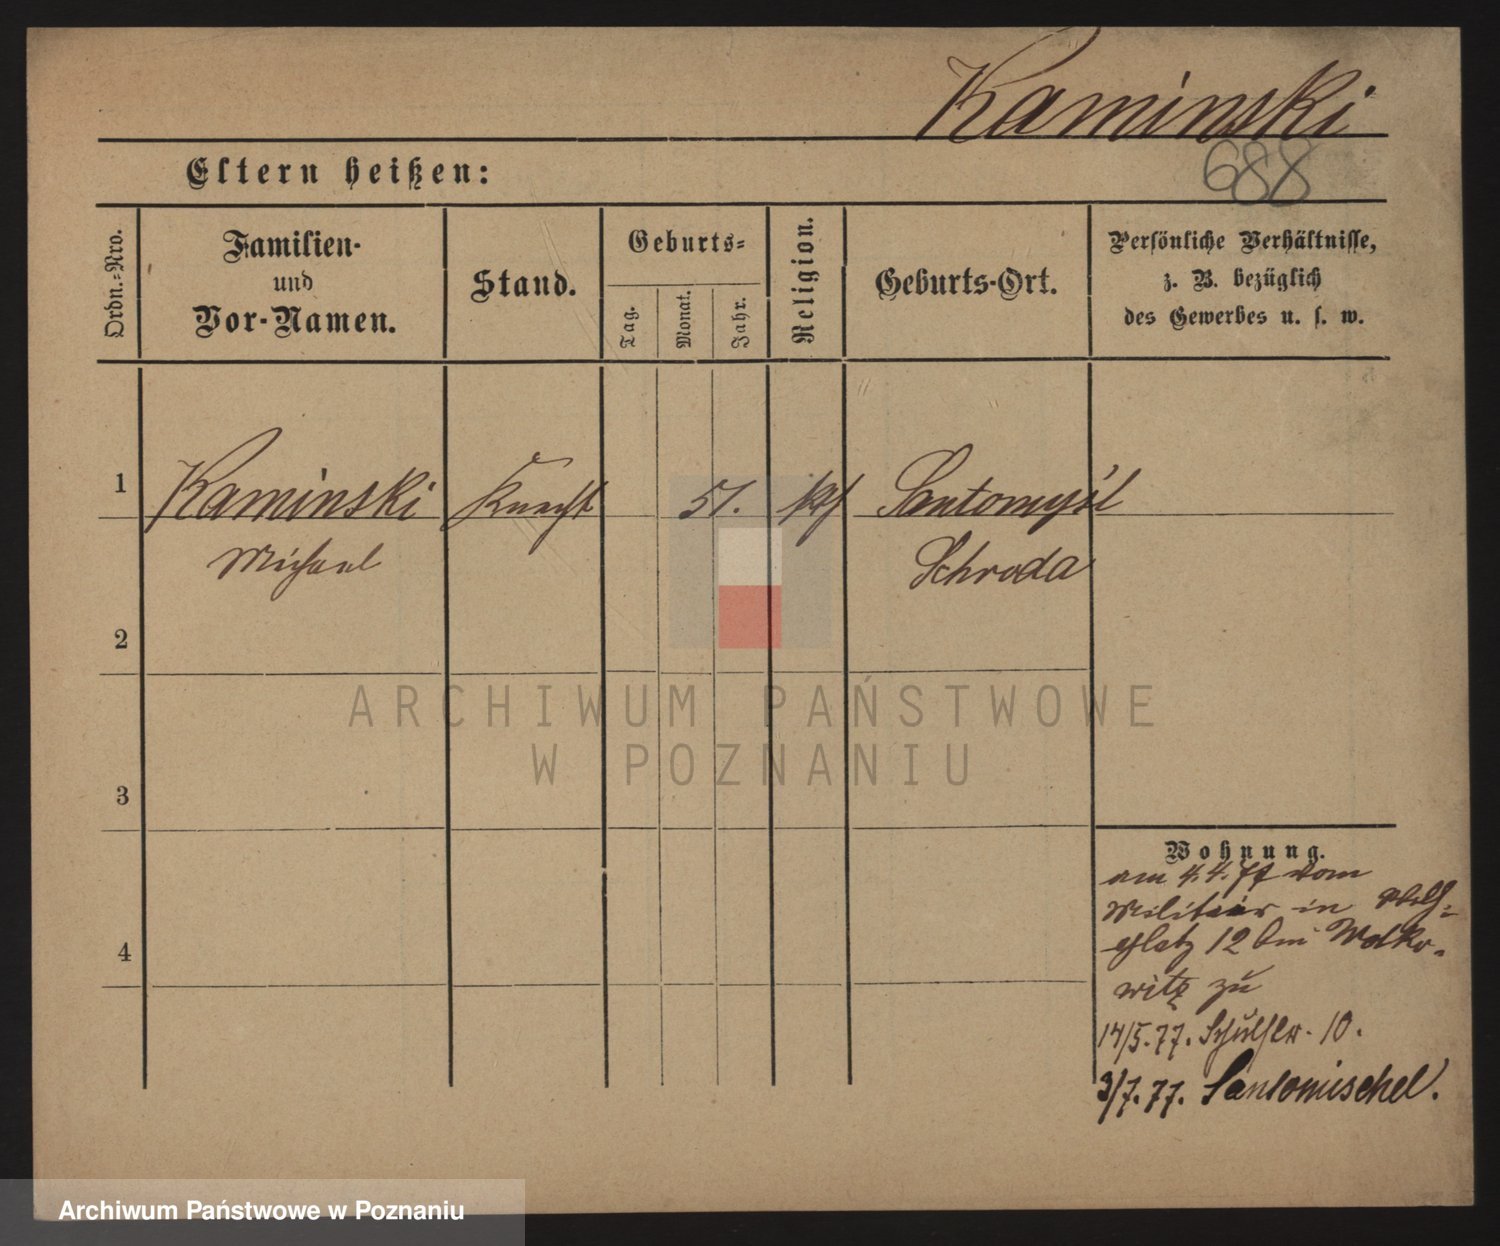 Kaminski
688
Eltern heißen:
Ordn.-Nro.
Familien-
und
Vor-Namen.
Stand.
Geburts-
Tag.
Monat.
Jahr.
Religion.
Geburts-Ort.
Persönliche Verhältnisse,
z. B. bezüglich
des Gewerbes u. s. w.
1 Kaminski Knecht 51. kth Santomysl
Michael Schroda
2
3
4
ARCHIWUM PAŃSTWOWE
W POZNANIU
Wohnung.
am 4.4.77 vom
Militair in
platz 12 bei Wolko-
witz zu
14/5.77. Schulstr. 10.
3/7.77. Santomischel.
Archiwum Państwowe w Poznaniu